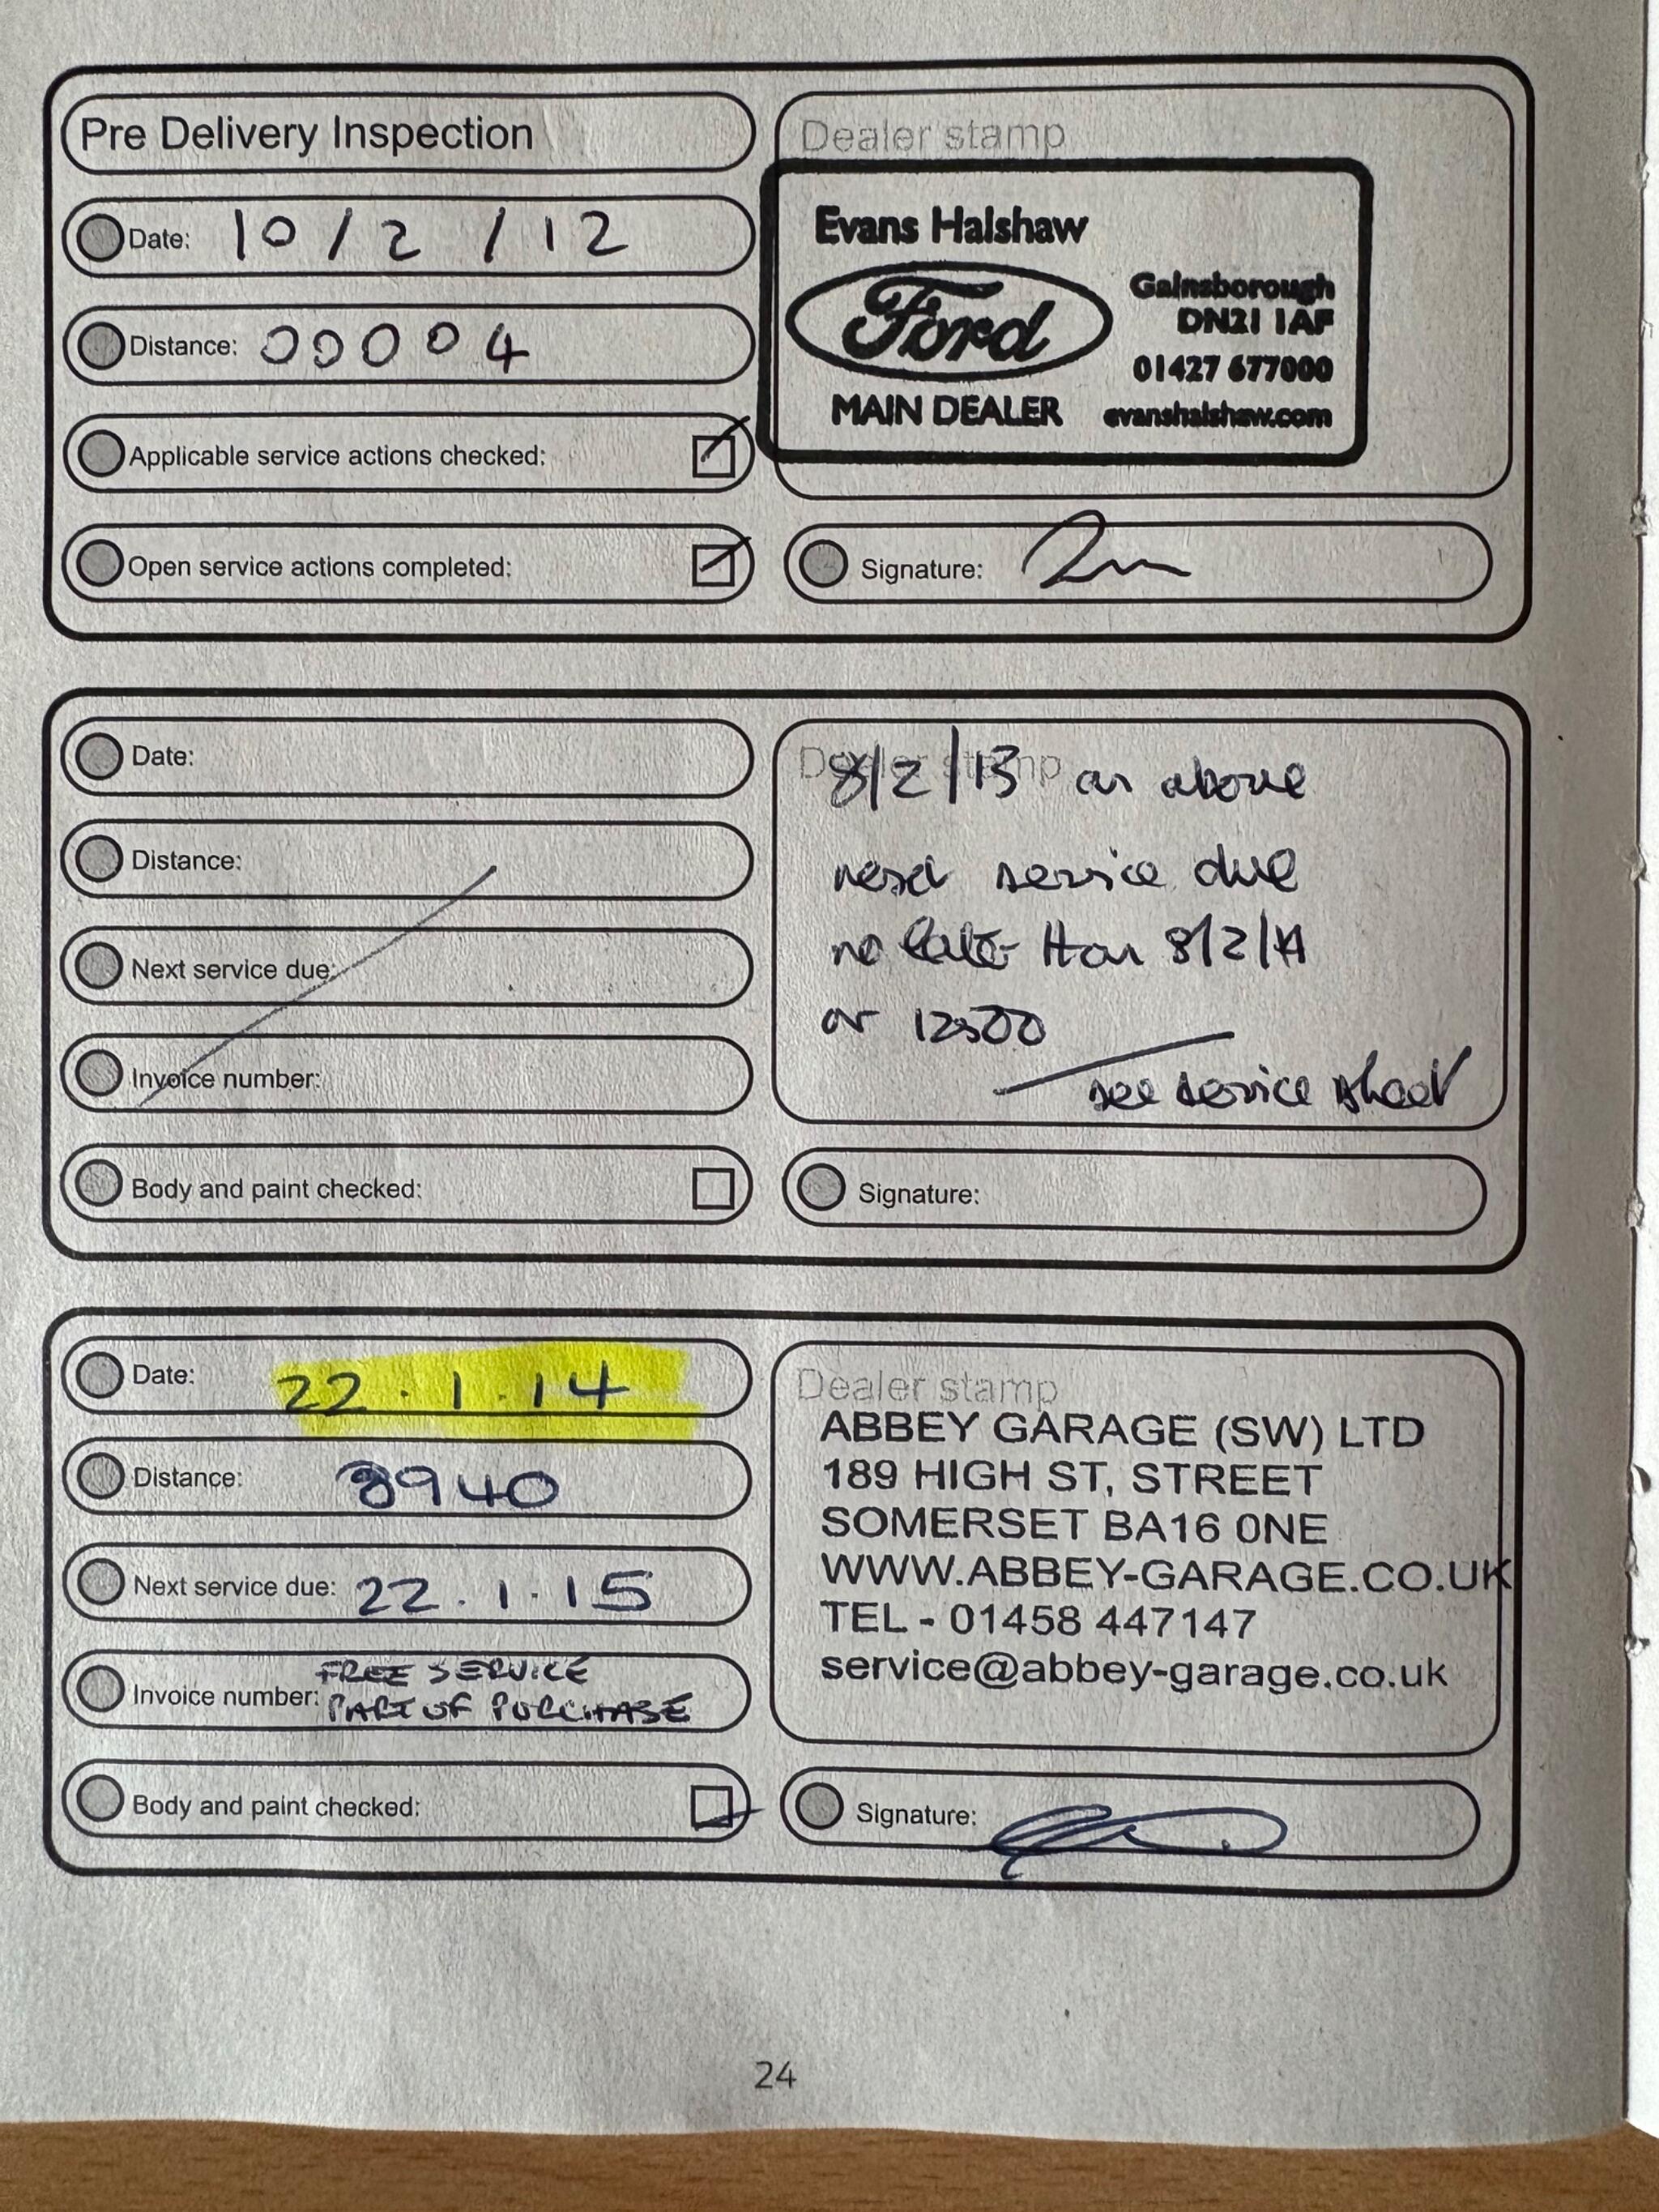 Pre Delivery Inspection
Dealer stamp
Date: 10/2/12
Distance: 00004
Applicable service actions checked:
Open service actions completed:
Evans Halshaw
Ford
MAIN DEALER
Gainsborough
DN21 1AF
01427 677000
evanshalshaw.com
Signature:
Date:
Distance:
Next service due:
Invoice number:
Body and paint checked:
Dealer stamp
8/2/13 as above
service due
no later than 8/2/14
or 12500
see service sheet
Signature:
Date: 22.1.14
Distance: 8940
Next service due: 22.1.15
Invoice number: FREE SERVICE
PART OF PURCHASE
Body and paint checked:
Dealer stamp
ABBEY GARAGE (SW) LTD
189 HIGH ST, STREET
SOMERSET BA16 0NE
WWW.ABBEY-GARAGE.CO.UK
TEL - 01458 447147
service@abbey-garage.co.uk
Signature:
24